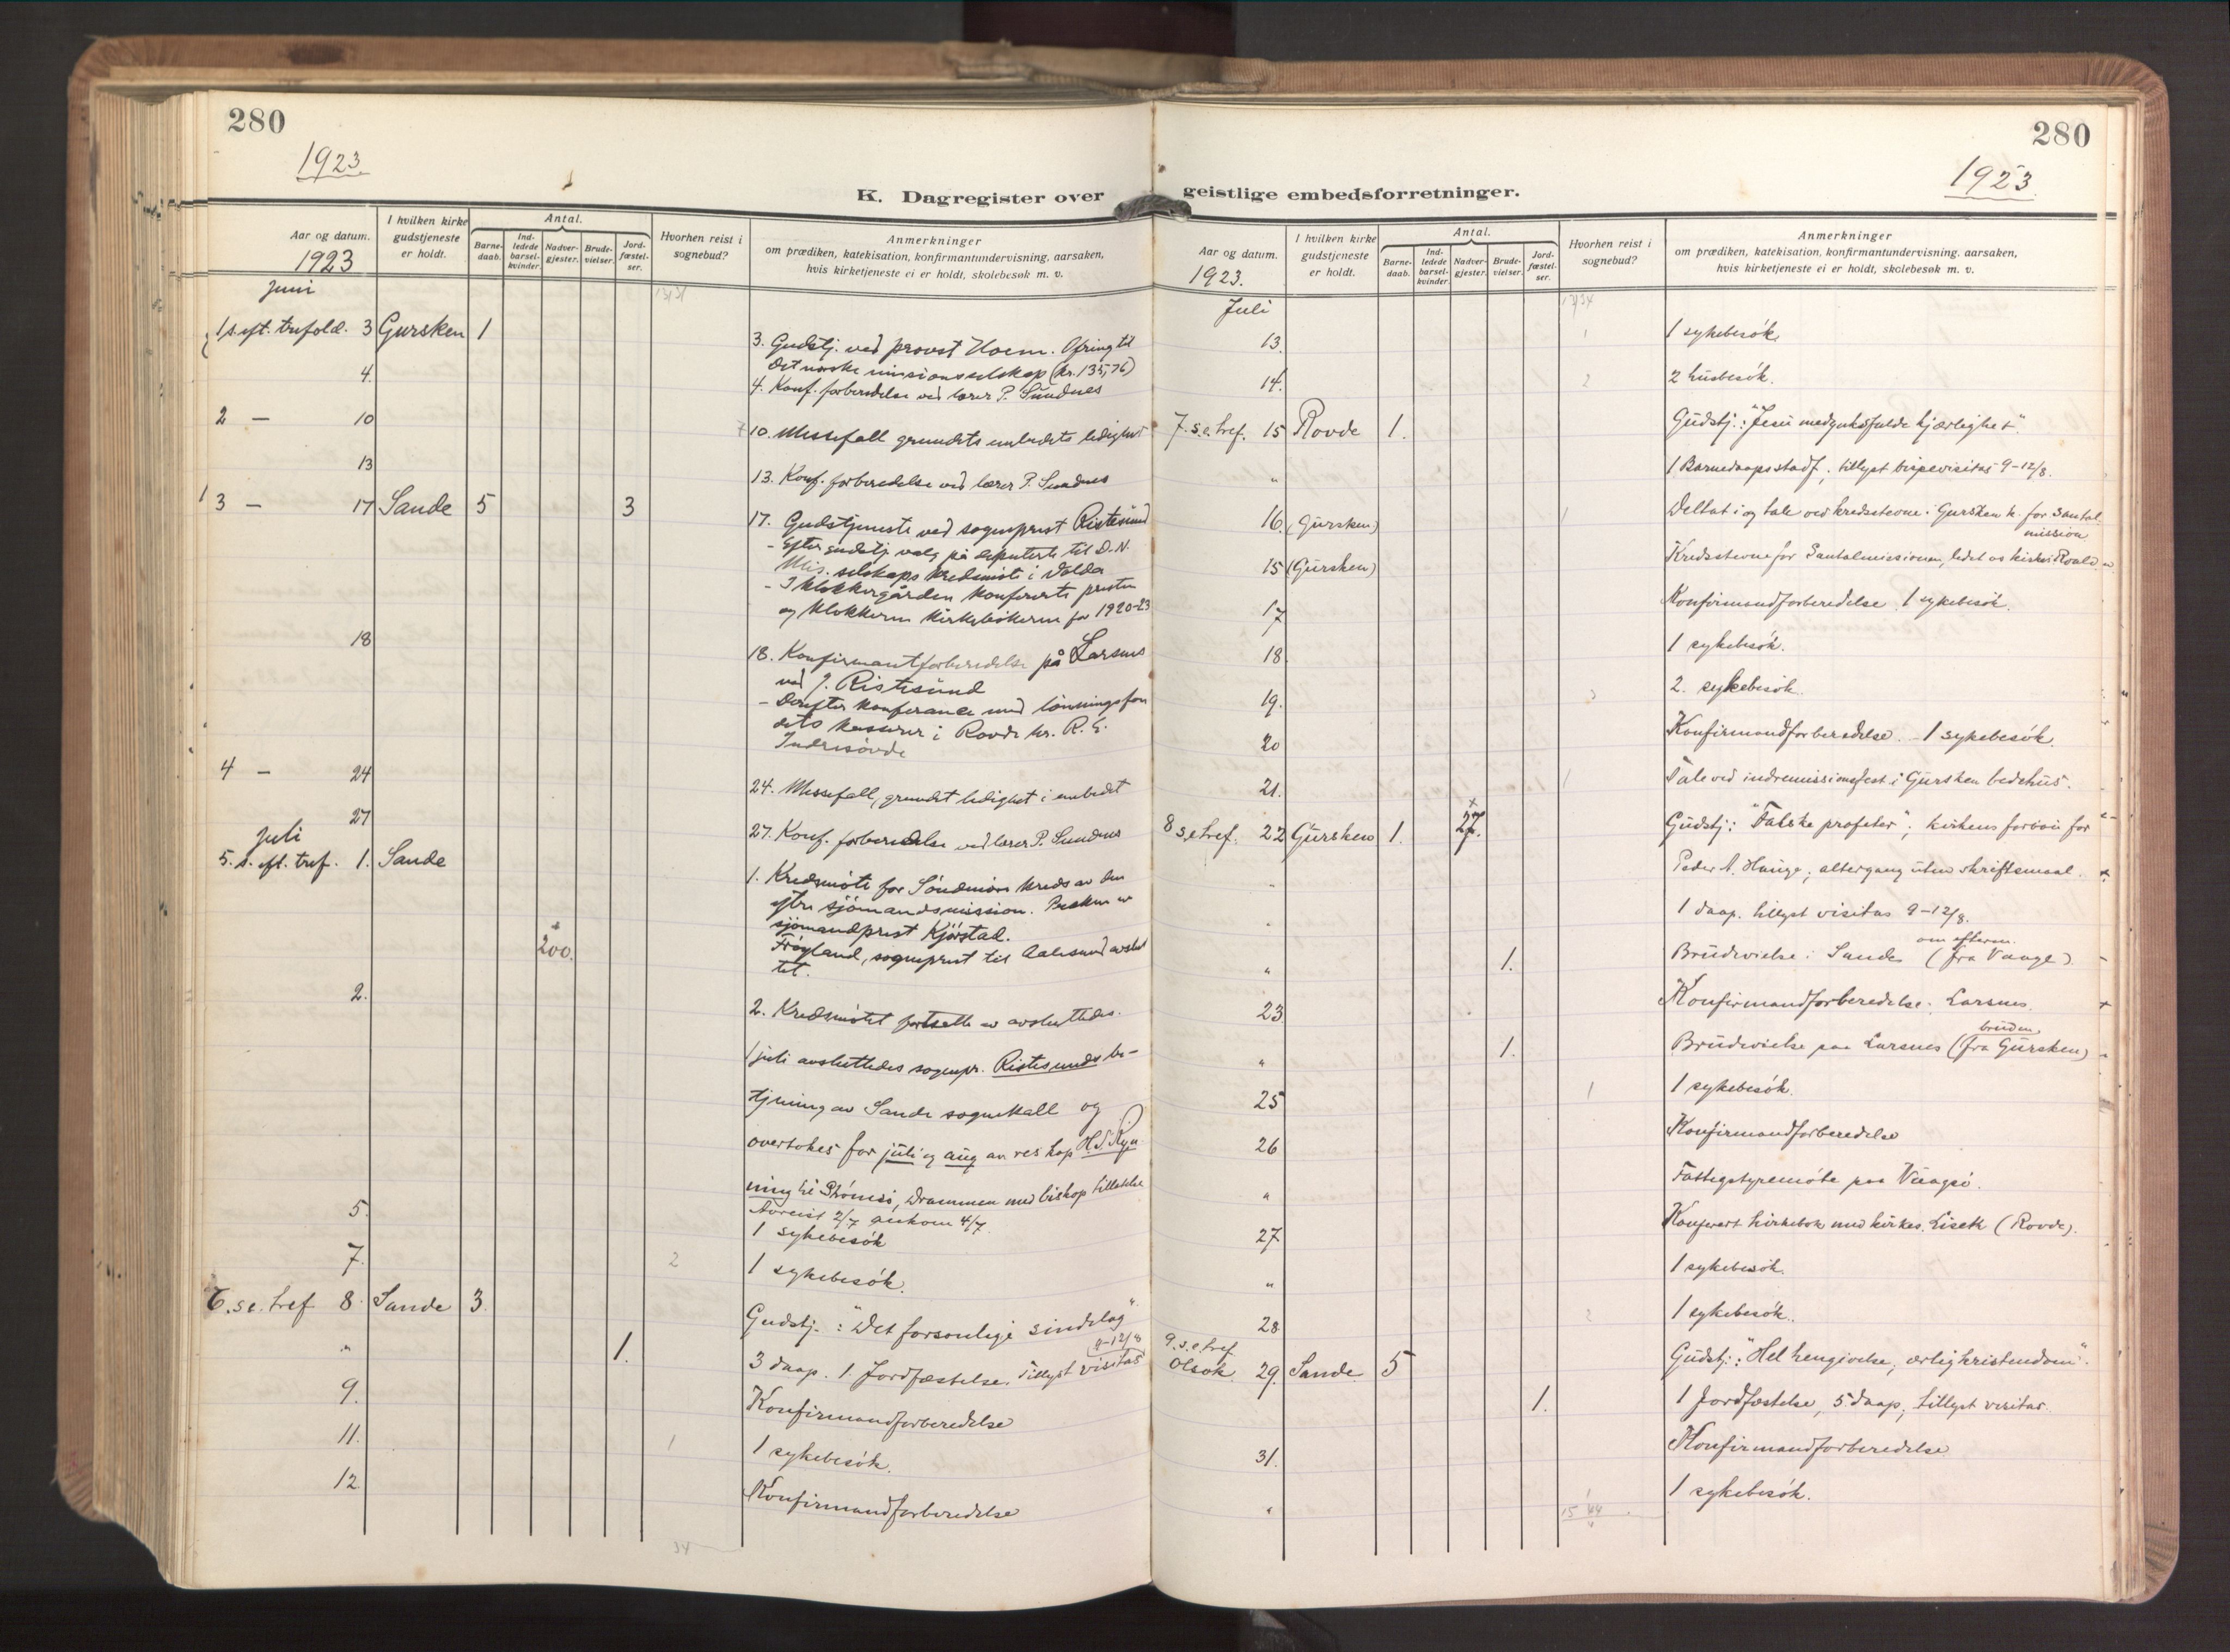 280
1923
K. Dagregister over
Aar og datum.
1923
I hvilken kirke gudstjeneste er holdt.
Antal.
Barne-daab.
Ind-ledede barsel-kvinder.
Nadver-gjester.
Brude-vielser.
Jord-fæstel-ser.
Hvorhen reist i sognebud?
Anmerkninger
om prædiken, katekisation, konfirmantundervisning, aarsaken,
hvis kirketjeneste ei er holdt, skolebesøk m. v.
Juni
1 s. eft. trefold. 3 Gursken 1
3. Gudstj. ved provst Hoem. Ofring til
Det norske missionsselskap (kr. 135,76)
4.
4. Konf. forberedelse ved lærer P. Sundnes
2 — 10
10. Messefall grundets embedets ledighet
13
13. Konf. forberedelse ved lærer P. Sundnes
3 — 17 Sande 5 3
17. Gudstjeneste ved sogneprest Ristesund
- Efter gudstj. valg på deputerte til D. N.
Mis. selskaps kredsmøte i Volda
- I klokkergården konfererte presten
og klokkeren kirkebökerne for 1920-23
18
18. Konfirmantforberedelse på Larsnes
ved J. Ristesund
- Derefter konferanse med lønningsfon
dets kasserer i Rovde hr. R. E.
Indresövde
4 — 24
24. Messefall, grundet ledighet i embedet
27
27. Konf. forberedelse ved lærer P. Sundnes
Juli
5. s. eft. tref. 1. Sande
1. Kredsmöte for Söndmör kreds av den
sjömandsmission.
sjömandsprest Kjörstad.
200.
Fröyland, sogneprest til Aalesund avslut
tet.
2.
2. Kredsmötet fortsatte avsluttedes.
1 juli avsluttedes sognepr. Ristesunds be-
tjening av Sande sognekall og
overtokes for juli og aug av res kap
ning til Strömsö, Drammen med biskop tillatelse
Avreist 2/7 ankom 4/7.
5.
1 sykebesök
7. 2
1 sykebesök.
6. s. e. tref 8. Sande 3.
Gudstj.: "Det forsonlige sindelag"
" 1.
3 daap. 1. Jordfæstelse. Tillyst visitas 9-12/8
9.
Konfirmandforberedelse
11. 1
1 sykebesök.
12
Konfirmandforberedelse
34
280
1923.
geistlige embedsforretninger.
Aar og datum.
1923.
I hvilken kirke gudstjeneste er holdt.
Antal.
Barne-daab.
Ind-ledede barsel-kvinder.
Nadver-gjester.
Brude-vielser.
Jord-fæstel-ser.
Hvorhen reist i sognebud?
Anmerkninger
om prædiken, katekisation, konfirmantundervisning, aarsaken,
hvis kirketjeneste ei er holdt, skolebesøk m. v.
Juli
13. 1 1 sykebesök
14. 2 2 husbesök.
7. s. e. tref. 15 Rovde 1. Gudstj.: "Jesu medynksfulde kjærlighet".
" 1 Barnedaapsstadf.; tillyst bispevisitas 9-12/8.
16. (Gursken) 1 Deltat i og tale ved kredsstevne i Gursken k. for Santal
mission
15 (Gursken) Kredsstevne for Santalmissionen, ledet av Roald
17 Konfirmandforberedelse. 1 sykebesök.
18. 1 sykebesök.
19. 2. sykebesök.
20 Konfirmandforberedelse. - 1 sykebesök.
21. 1 Tale ved indremissionsfest i Gursken bedehus.
8 s. e. tref. 22 Gursken 1. 27. Gudstj: "Falske profeter"; kirkens forbön for
" Peder A. Hauge; altergang uten skriftemaal.
" 1 daap. tillyst visitas 9-12/8.
" 1. Brudevielse i Sande om efterm. (fra Vaage).
23 Konfirmandforberedelse. Larsnes.
" 1. Brudevielse paa Larsnes (bruden fra Gursken)
25 1 1 sykebesök.
26 Konfirmandforberedelse
" Fattigstyremöte paa Vaagsö.
27 Konferert kirkebok med kirkes. Liseth (Rovde).
" 1 sykebesök.
28 2 1 sykebesök.
9. s. e. tref.
Olsok. 29. Sande. 5 Gudstj.: "Hel hengivelse, ærlig kristendom".
1. 1 Jordfæstelse, 5 daap; tillyst visitas.
31. Konfirmandforberedelse
" 1 1 sykebesök.
15 44